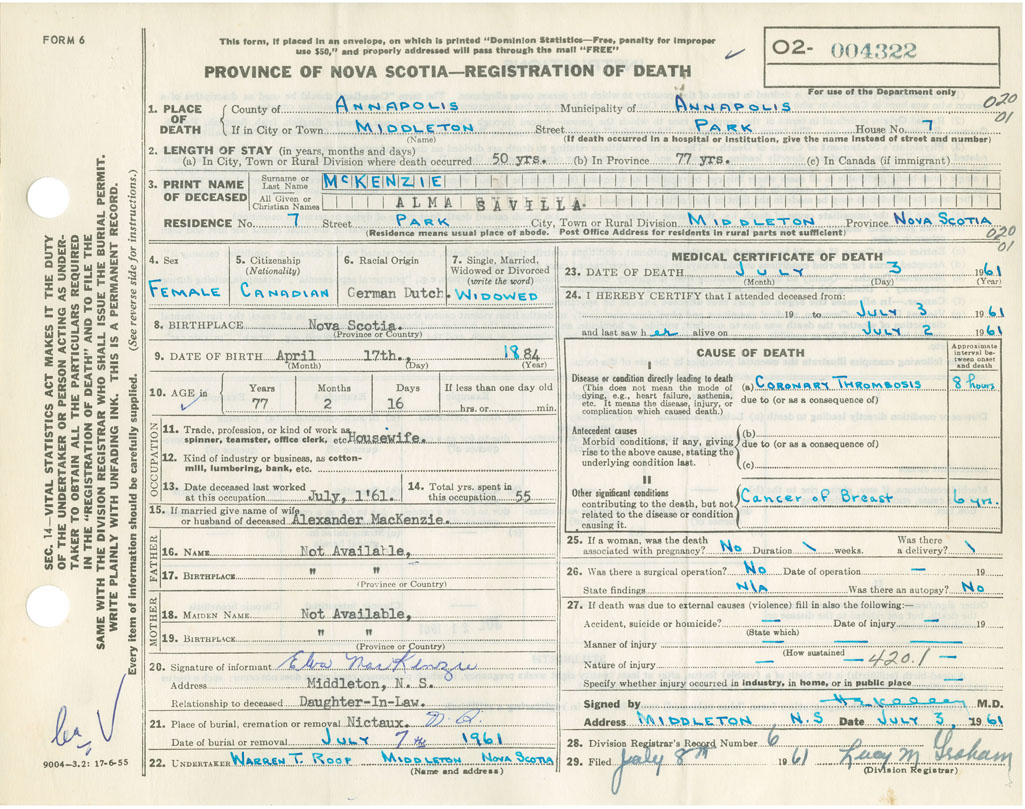 FORM 6
This form, if placed in an envelope, on which is printed "Dominion Statistics—Free, penalty for improper
use $50," and properly addressed will pass through the mail "FREE"
PROVINCE OF NOVA SCOTIA—REGISTRATION OF DEATH
02- 004322
For use of the Department only
020
01
1. PLACE OF DEATH { County of ANNAPOLIS Municipality of ANNAPOLIS
If in City or Town MIDDLETON Street PARK House No. 7
(Name) (If death occurred in a hospital or institution, give the name instead of street and number)
2. LENGTH OF STAY (in years, months and days)
(a) In City, Town or Rural Division where death occurred 50 yrs. (b) In Province 77 yrs. (c) In Canada (if immigrant)
3. PRINT NAME OF DECEASED Surname or Last Name McKENZIE
All Given or Christian Names ALMA SAVILLA
RESIDENCE No. 7 Street PARK City, Town or Rural Division MIDDLETON Province NOVA SCOTIA
(Residence means usual place of abode. Post Office Address for residents in rural parts not sufficient)
020
01
4. Sex FEMALE
5. Citizenship (Nationality) CANADIAN
6. Racial Origin German Dutch.
7. Single, Married, Widowed or Divorced (write the word) WIDOWED
8. BIRTHPLACE Nova Scotia.
(Province or Country)
9. DATE OF BIRTH April 17th., 1884
(Month) (Day) (Year)
10. AGE in Years 77 Months 2 Days 16 If less than one day old hrs. or min.
OCCUPATION
11. Trade, profession, or kind of work as spinner, teamster, office clerk, etc. Housewife.
12. Kind of industry or business, as cotton-mill, lumbering, bank, etc.
13. Date deceased last worked at this occupation July, 1'61. 14. Total yrs. spent in this occupation 55
15. If married give name of wife or husband of deceased Alexander MacKenzie.
FATHER
16. NAME Not Available,
17. BIRTHPLACE " "
(Province or Country)
MOTHER
18. MAIDEN NAME Not Available,
19. BIRTHPLACE " "
(Province or Country)
20. Signature of informant Elva MacKenzie
Address Middleton, N. S.
Relationship to deceased Daughter-In-Law.
21. Place of burial, cremation or removal Nictaux.
Date of burial or removal JULY 7TH 1961
22. UNDERTAKER WARREN T. ROOP MIDDLETON NOVA SCOTIA
(Name and address)
MEDICAL CERTIFICATE OF DEATH
23. DATE OF DEATH JULY 3 1961
(Month) (Day) (Year)
24. I HEREBY CERTIFY that I attended deceased from:
19 to JULY 3 1961
and last saw her alive on JULY 2 1961
CAUSE OF DEATH
Approximate interval between onset and death
I
Disease or condition directly leading to death (a) CORONARY THROMBOSIS 8 hours
(This does not mean the mode of dying, e.g., heart failure, asthenia, etc. It means the disease, injury, or complication which caused death.)
due to (or as a consequence of)
Antecedent causes
Morbid conditions, if any, giving rise to the above cause, stating the underlying condition last.
(b)
due to (or as a consequence of)
(c)
II
Other significant conditions
contributing to the death, but not related to the disease or condition causing it.
Cancer of Breast 6 yrs.
25. If a woman, was the death associated with pregnancy? No Duration \ weeks. Was there a delivery? \
26. Was there a surgical operation? No Date of operation — 19
State findings N/A Was there an autopsy? No
27. If death was due to external causes (violence) fill in also the following:—
Accident, suicide or homicide? — Date of injury — 19
(State which)
Manner of injury —
(How sustained)
Nature of injury — 420.1 —
Specify whether injury occurred in industry, in home, or in public place —
Signed by M.D.
Address MIDDLETON, N.S Date JULY 3, 1961
28. Division Registrar's Record Number 6
29. Filed July 8th 1961 Lucy M Graham
(Division Registrar)
SEC. 14—VITAL STATISTICS ACT MAKES IT THE DUTY
OF THE UNDERTAKER OR PERSON ACTING AS UNDER-
TAKER TO OBTAIN ALL THE PARTICULARS REQUIRED
IN THE "REGISTRATION OF DEATH" AND TO FILE THE
SAME WITH THE DIVISION REGISTRAR WHO SHALL ISSUE THE BURIAL PERMIT.
WRITE PLAINLY WITH UNFADING INK. THIS IS A PERMANENT RECORD.
Every item of information should be carefully supplied. (See reverse side for instructions.)
9004—3.2: 17-6-55